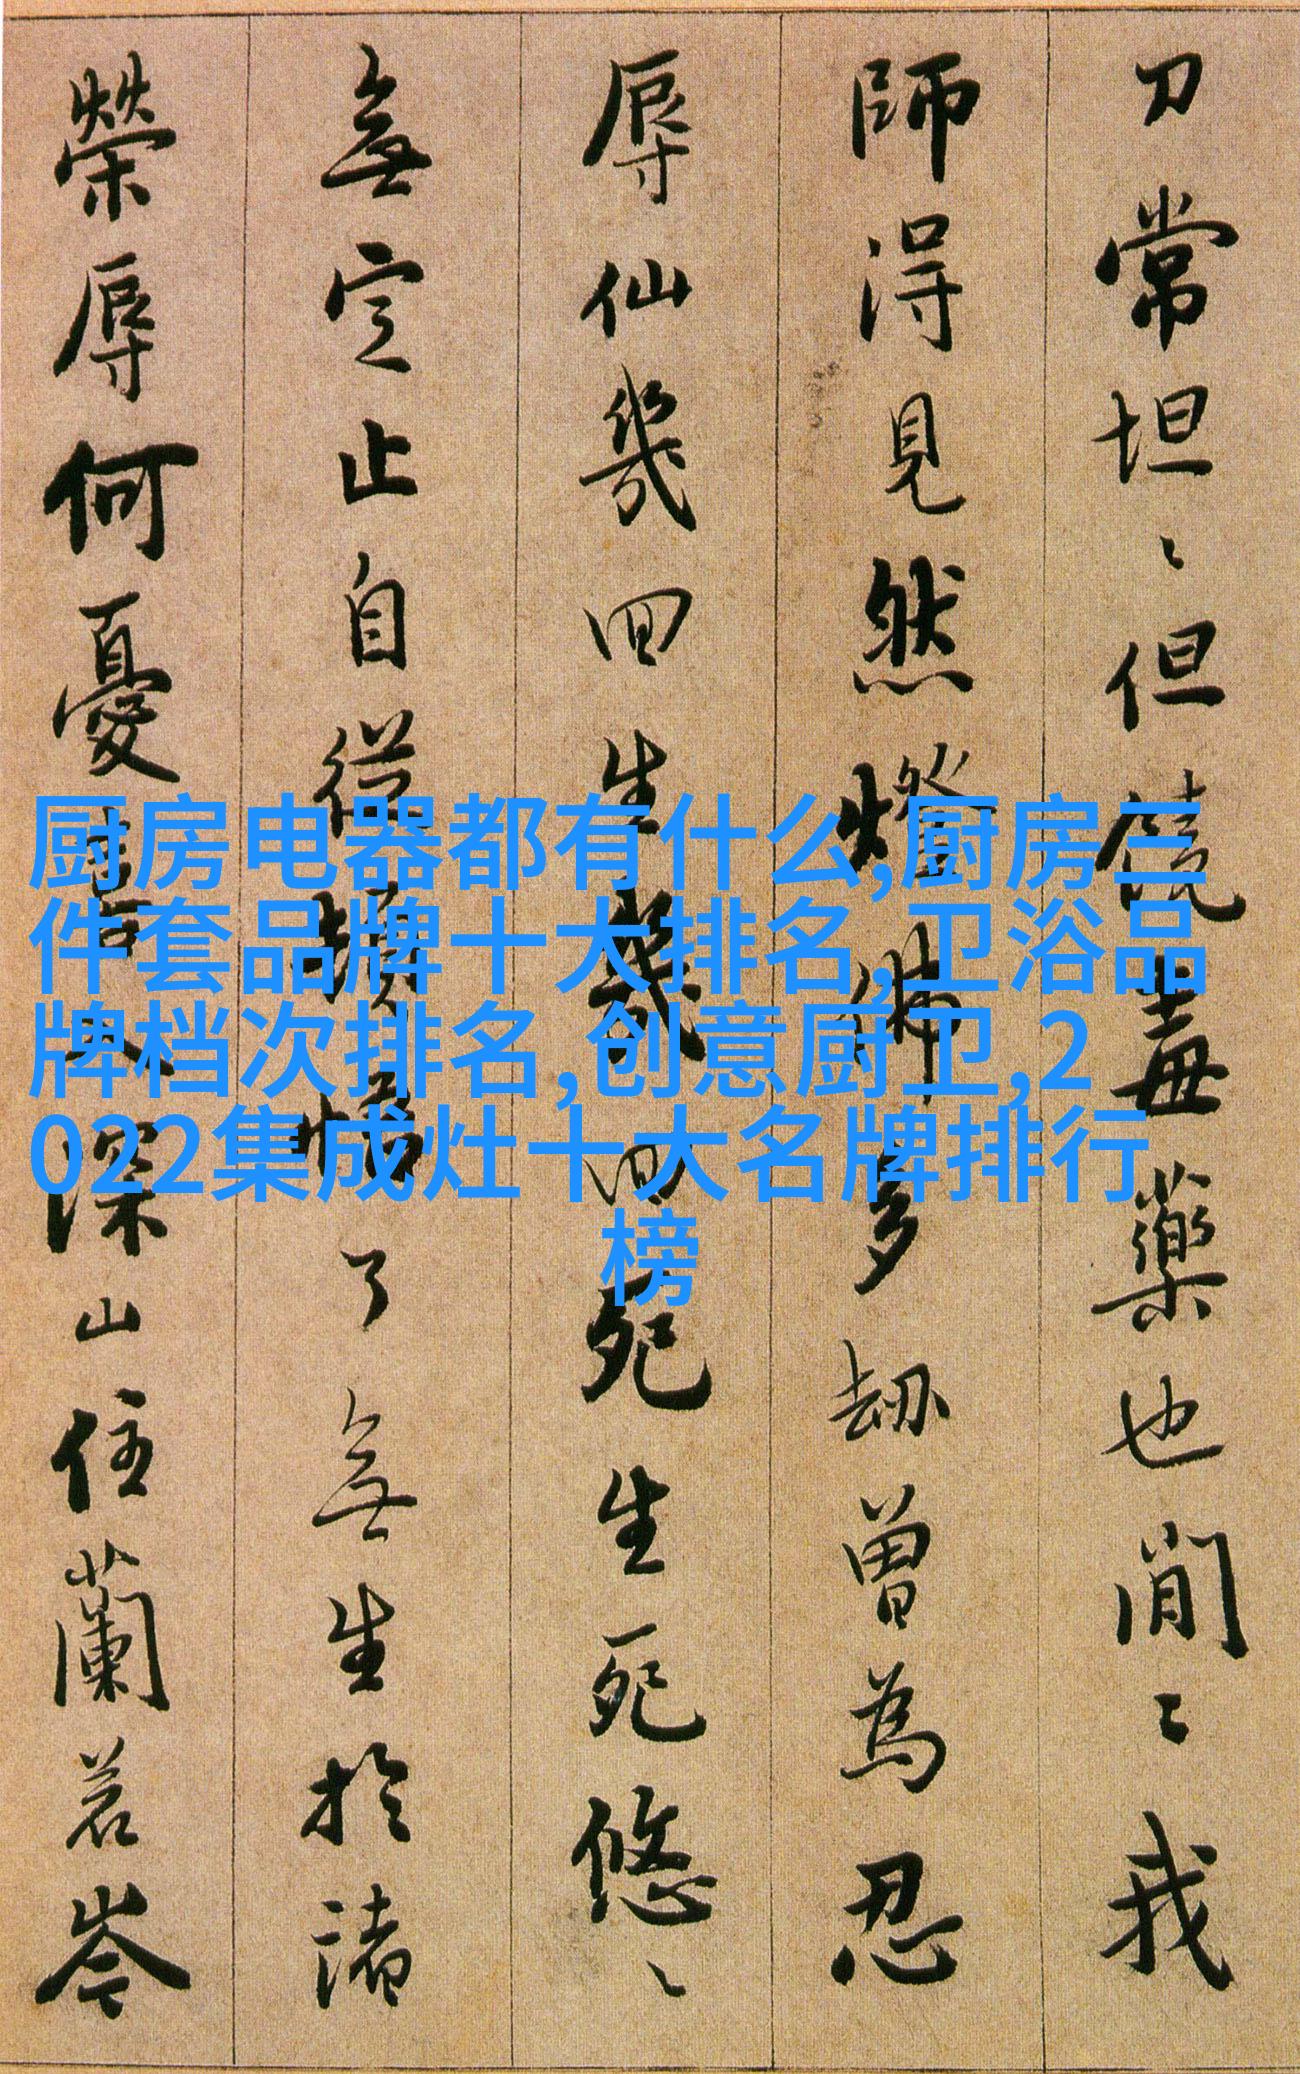 刀常坦〻但饒毒藥也閒〻我
師得見然燈佛多劫曾為忍
辱仙幾回生幾回死生死悠〻
無定止自從頓悟了無生於諸
榮辱何憂喜入深山住蘭若岑
厨房电器都有什么,厨房三
件套品牌十大排名,卫浴品
牌档次排名,创意厨卫,2
022集成灶十大名牌排行
榜